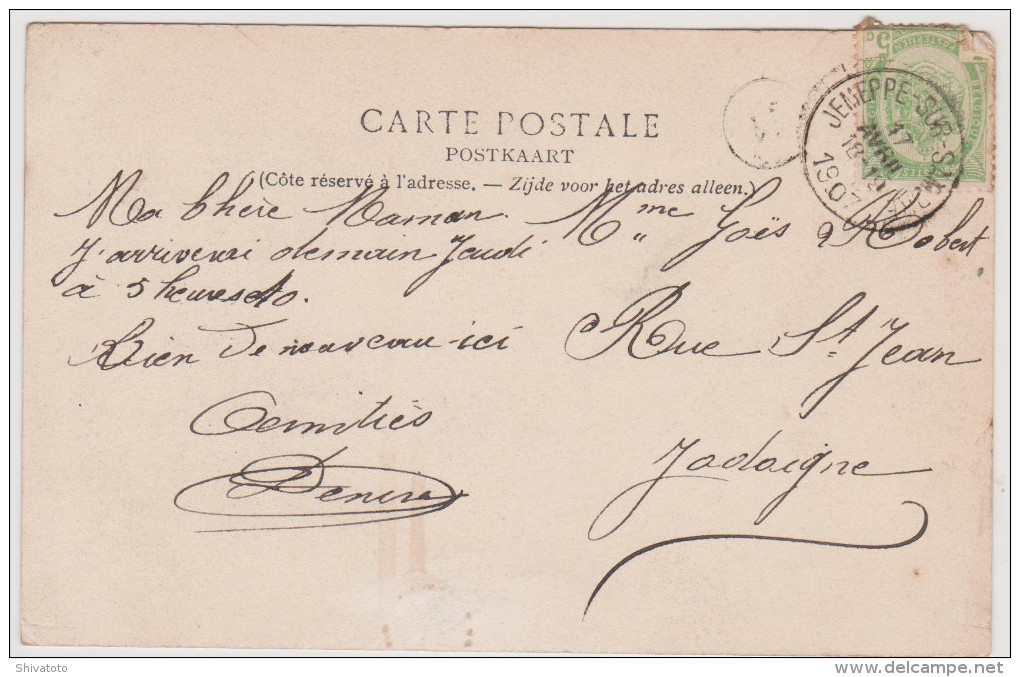 CARTE POSTALE
POSTKAART
(Côte réservé à l'adresse. — Zijde voor het adres alleen.)
JEMEPPE-SUR-SAMBRE
17
AVRIL
18-19
1907
5
BELGIQUE
Ma Chère Maman
J'arriverai demain Jeudi
à 5 heures 40.
Rien de nouveau ici
Amitiés
Mme Goës Robert
Rue St Jean
Jodoigne
Shivatoto
delcampe.net